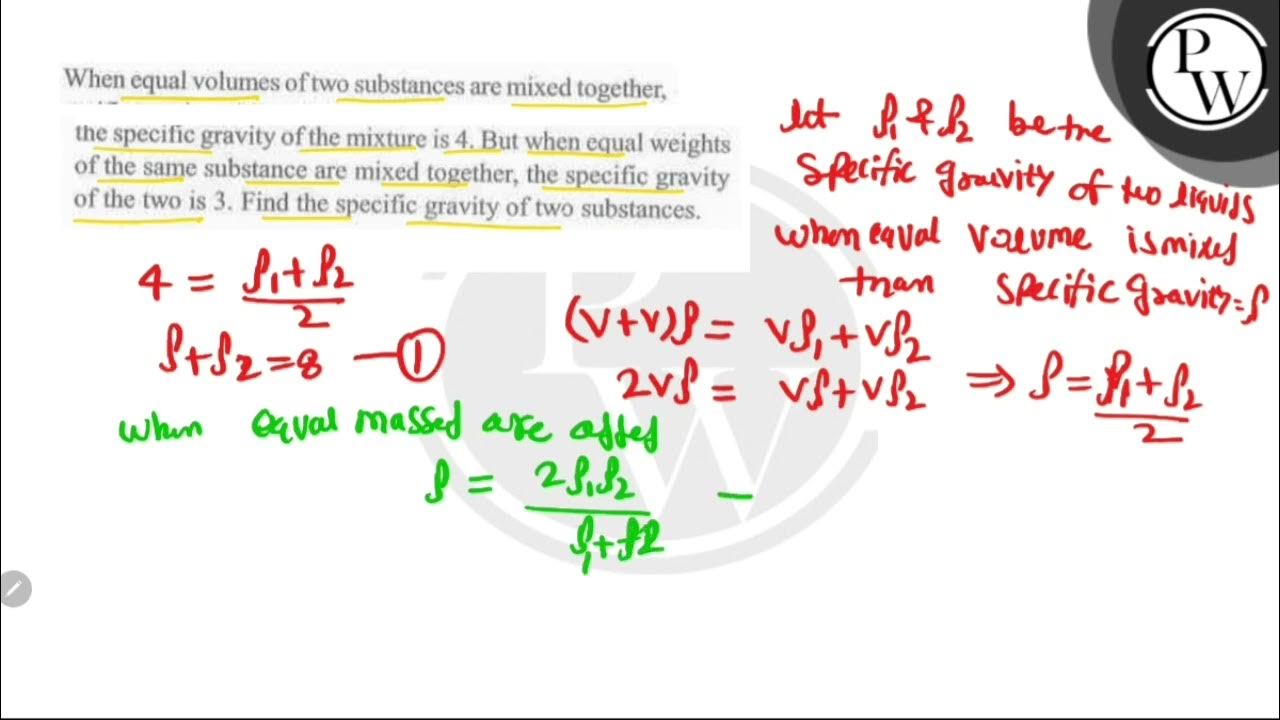 When equal volumes of two substances are mixed together,
the specific gravity of the mixture is 4. But when equal weights
of the same substance are mixed together, the specific gravity
of the two is 3. Find the specific gravity of two substances.
P
W
let ρ₁ & ρ₂ be the
specific gravity of two liquids
when equal volume is mixed
than specific gravity = ρ
4 = ρ₁ + ρ₂ / 2
ρ + ρ₂ = 8 — ①
(V+V)ρ = Vρ₁ + Vρ₂
2Vρ = Vρ + Vρ₂ ⇒ ρ = ρ₁ + ρ₂ / 2
when equal massed are added
ρ = 2ρ₁ρ₂ / ρ₁ + ρ2 —